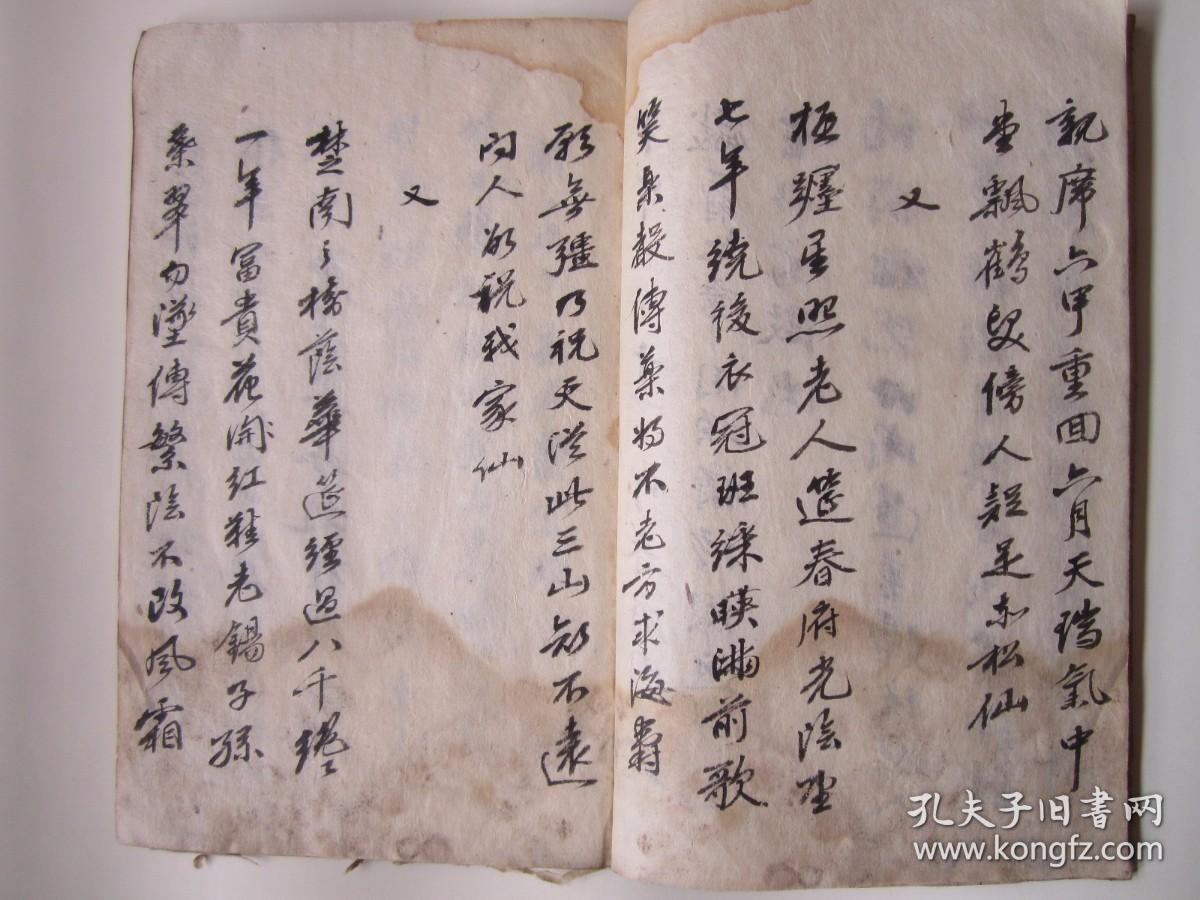 親席六甲重回六月天瑞氣中
堂飄鶴髮傍人疑是赤松仙
又
極躔星照老人筵春府光陰
七年繞後衣冠班綵暎滿前歌
笑 傳藥物不老方求海
無疆乃祝天 此三山知不遠
問人 說我家仙
又
楚南之 蔭華筵經過八千
一年富貴花開紅 老錫子孫
桑翠勿墜傳繁陰不改風霜
孔夫子旧書网
www.kongfz.com